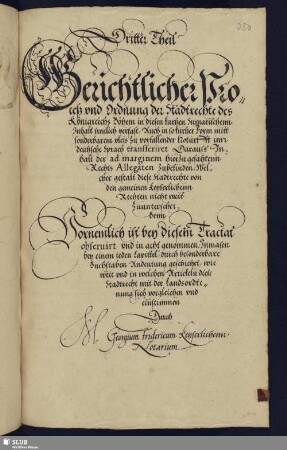 250
Dritter Theil
Gerichtlicher Pro-
ceß vnd Ordnung der Stadtrechte des
Königreichs Böhem in diesen kurtzen Summarischem
Inhalt treulich verfast. Auch in solcher Form mitt
sonderbarem vleis zu verfallender Notturfft inn
deutsche Sprach transferiret Daraus In-
halt der ad marginem hierzu gesatztenn
Rechts Allegaten Zubefinden. Wel-
cher gestalt diese Stadtrechte von
den gemeinen Keyserlichenn
Rechten nicht weit
Zuunterscheiden
denn
Vornemlich ist bey diesem Tractat
obseruirt vnd in acht genommen. Inmasen
bey einem jeden Capittel durch besonderbare
Buchstaben Andeutung geschiehet, wie
weit vnd in welchen Articteln diese
Stadtrecht mit der Landsordt-
nung sich vorgleichen vnd
einstimmen
Durch
M. Georgium Fridericum Keyserlichenn
Notarium
SLUB